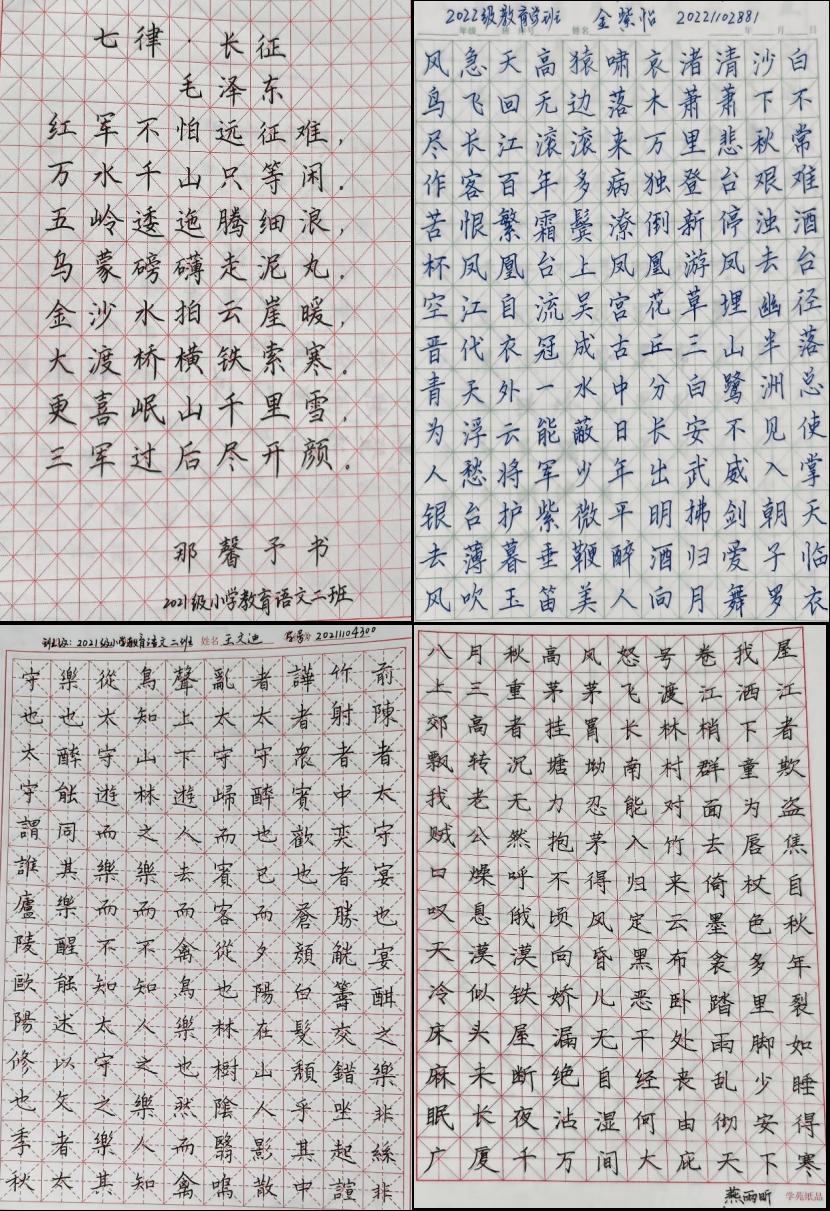 七律·长征
毛泽东
红军不怕远征难，
万水千山只等闲。
五岭逶迤腾细浪，
乌蒙磅礴走泥丸。
金沙水拍云崖暖，
大渡桥横铁索寒。
更喜岷山千里雪，
三军过后尽开颜。
那馨予书
2021级小学教育语文二班
2022级教育学班 金紫怡 2022102881
年级 班 姓名 年 月 日
风急天高猿啸哀渚清沙白
鸟飞回无边落木萧萧下不
尽长江滚滚来万里悲秋常
作客百年多病独登台艰难
苦恨繁霜鬓潦倒新停浊酒
杯凤凰台上凤凰游凤去台
空江自流吴宫花草埋幽径
晋代衣冠成古丘三山半落
青天外一水中分白鹭洲总
为浮云能蔽日长安不见使
人愁将军少年出武威入掌
银台护紫微平明拂剑朝天
去薄暮垂鞭醉酒归爱子临
风吹玉笛美人向月舞罗衣
班级：2021级小学教育语文二班 姓名 王文迪 学号 2021104300
前陳者太守宴也宴酣之樂非絲非
竹射者中奕者勝觥籌交錯坐起諠
譁者衆賓歡也蒼顏白髮頹乎其中
者太守醉也已而夕陽在山人影散
亂太守歸而賓客從也林樹陰翳鳴
聲上下遊人去而禽鳥樂也然而禽
鳥知山林之樂而不知人之樂人知
從太守遊而樂而不知太守之樂其
樂也醉能同其樂醒能述以文者太
守也太守謂誰廬陵歐陽修也季秋
八月秋高风怒号卷我屋
上三重茅茅飞渡江洒江
郊高者挂罥长林梢下者
飘转沉塘坳南村群童欺
我老无力忍能对面为盗
贼公然抱茅入竹去唇焦
口燥呼不得归来倚杖自
叹息俄顷风定云墨色秋
天漠漠向昏黑布衾多年
冷似铁娇儿恶卧踏里裂
床头屋漏无干处雨脚如
麻未断绝自经丧乱少睡
眠长夜沾湿何由彻安得
广厦千万间大庇天下寒
燕雨昕 学苑纸品